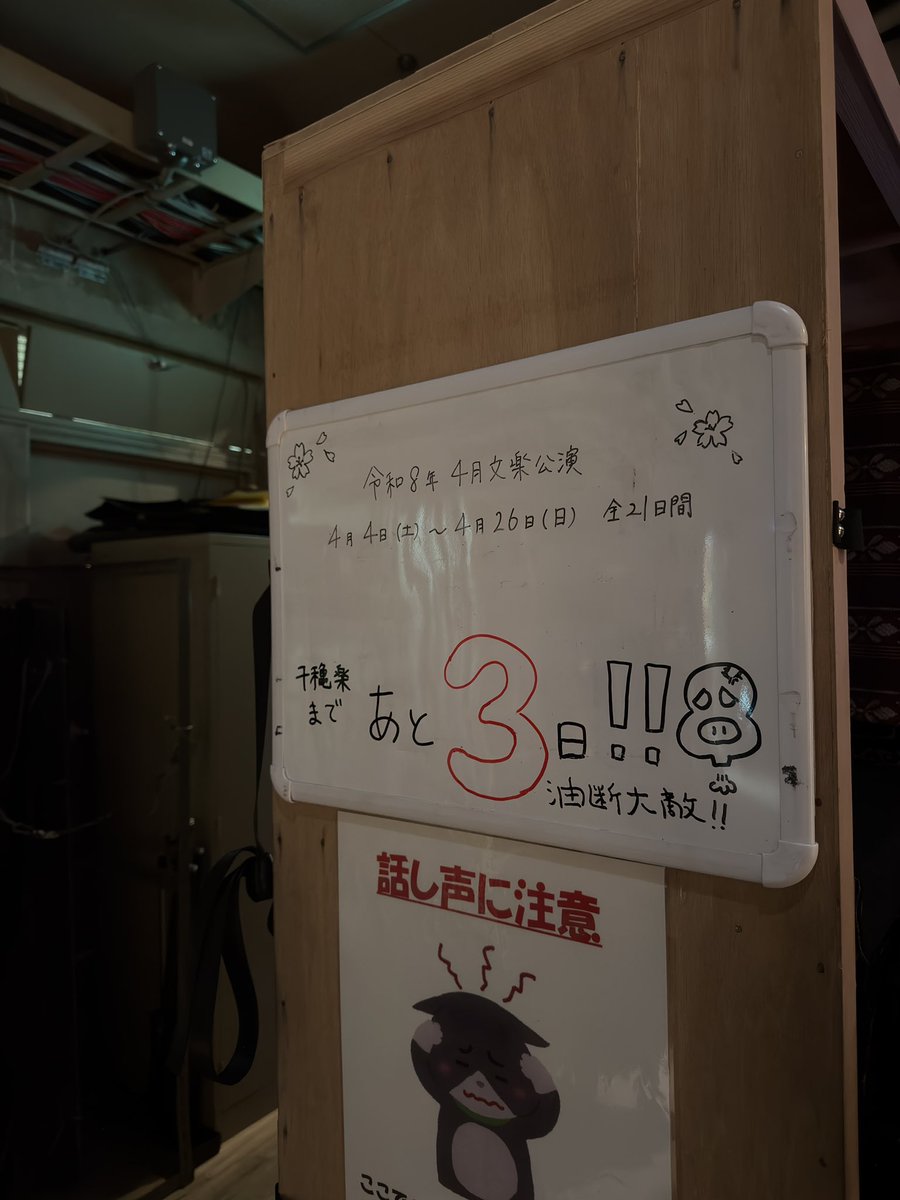 令和8年 4月文楽公演
4月4日(土)~4月26日(日) 全21日間
千穐楽
まで
あと3日!!
油断大敵!!
話し声に注意
ここで